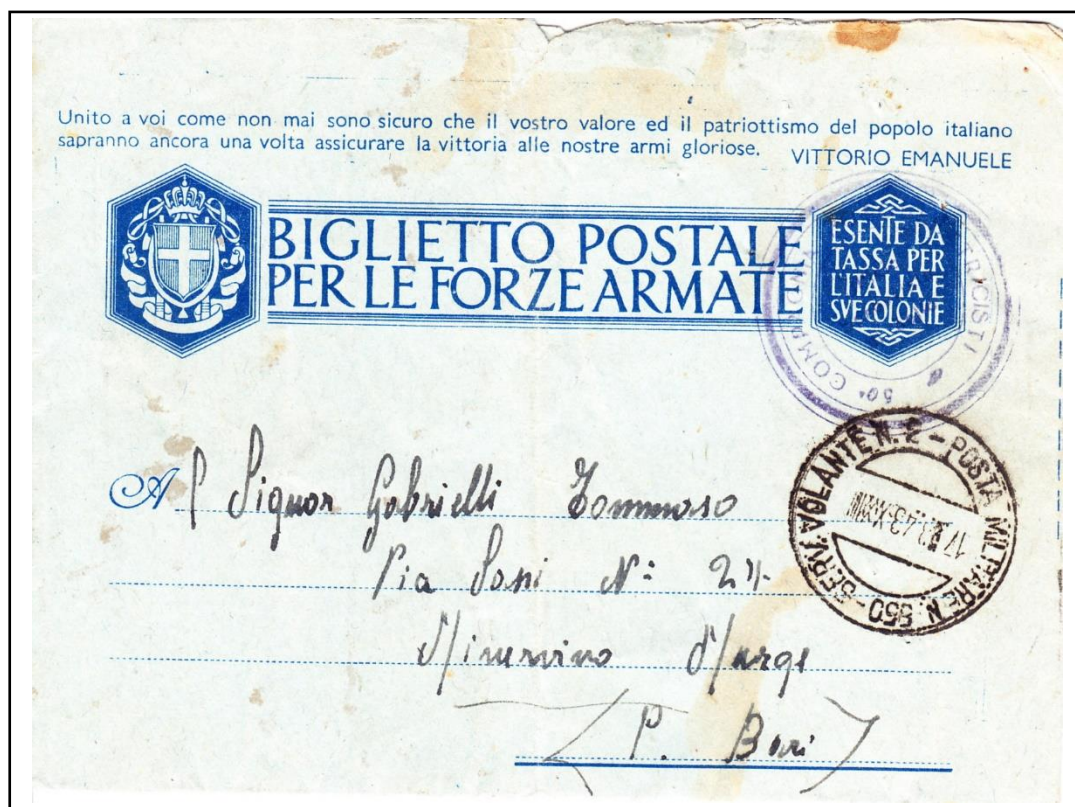 Unito a voi come non mai sono sicuro che il vostro valore ed il patriottismo del popolo italiano
sapranno ancora una volta assicurare la vittoria alle nostre armi gloriose. VITTORIO EMANUELE
BIGLIETTO POSTALE
PER LE FORZE ARMATE
ESENTE DA
TASSA PER
L'ITALIA E
SVE COLONIE
50ª COMP
SERV. VOLANTE N. 2 - POSTA MILITARE N. 550 -
A l Signor Gabrielli Tommaso
Via Sani N: 24
Minervino Murge
(P. Bari)